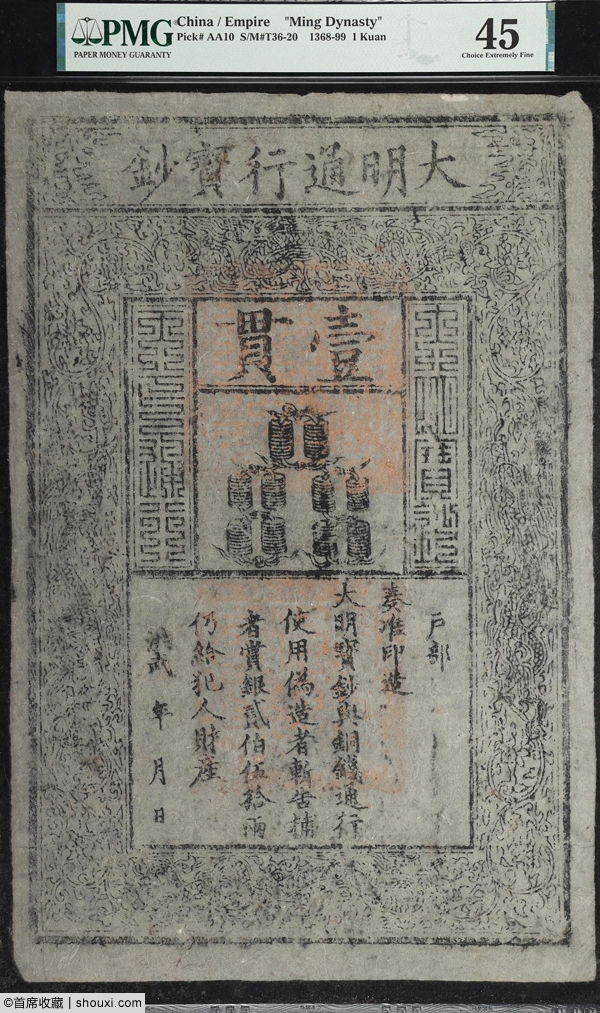 PMG
PAPER MONEY GUARANTY
China / Empire "Ming Dynasty"
Pick# AA10 S/M#T36-20 1368-99 1 Kuan
45
Choice Extremely Fine
大明通行寶鈔
壹貫
戶部
奏准印造
大明寶鈔與銅錢通行
使用偽造者斬告捕
者賞銀貳伯伍拾兩
仍給犯人財產
洪武 年 月 日
©首席收藏 | shouxi.com